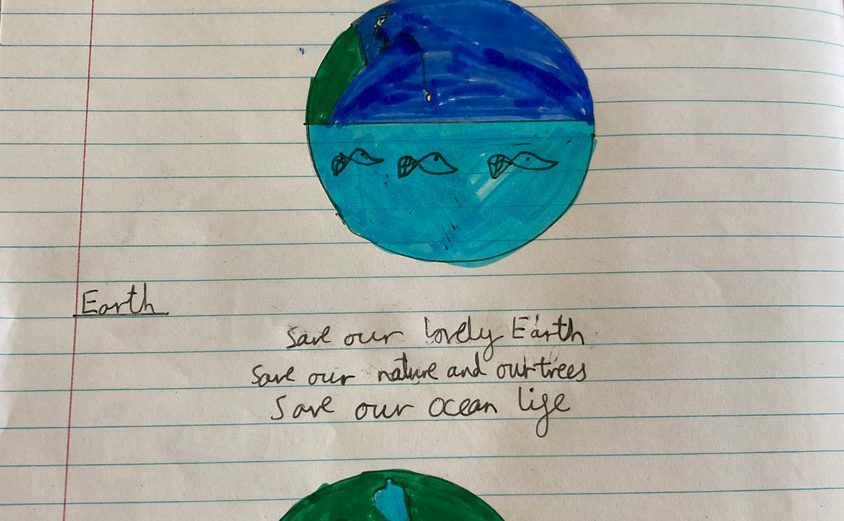 Earth
Save our lovely Earth
Save our nature and our trees
Save our ocean life